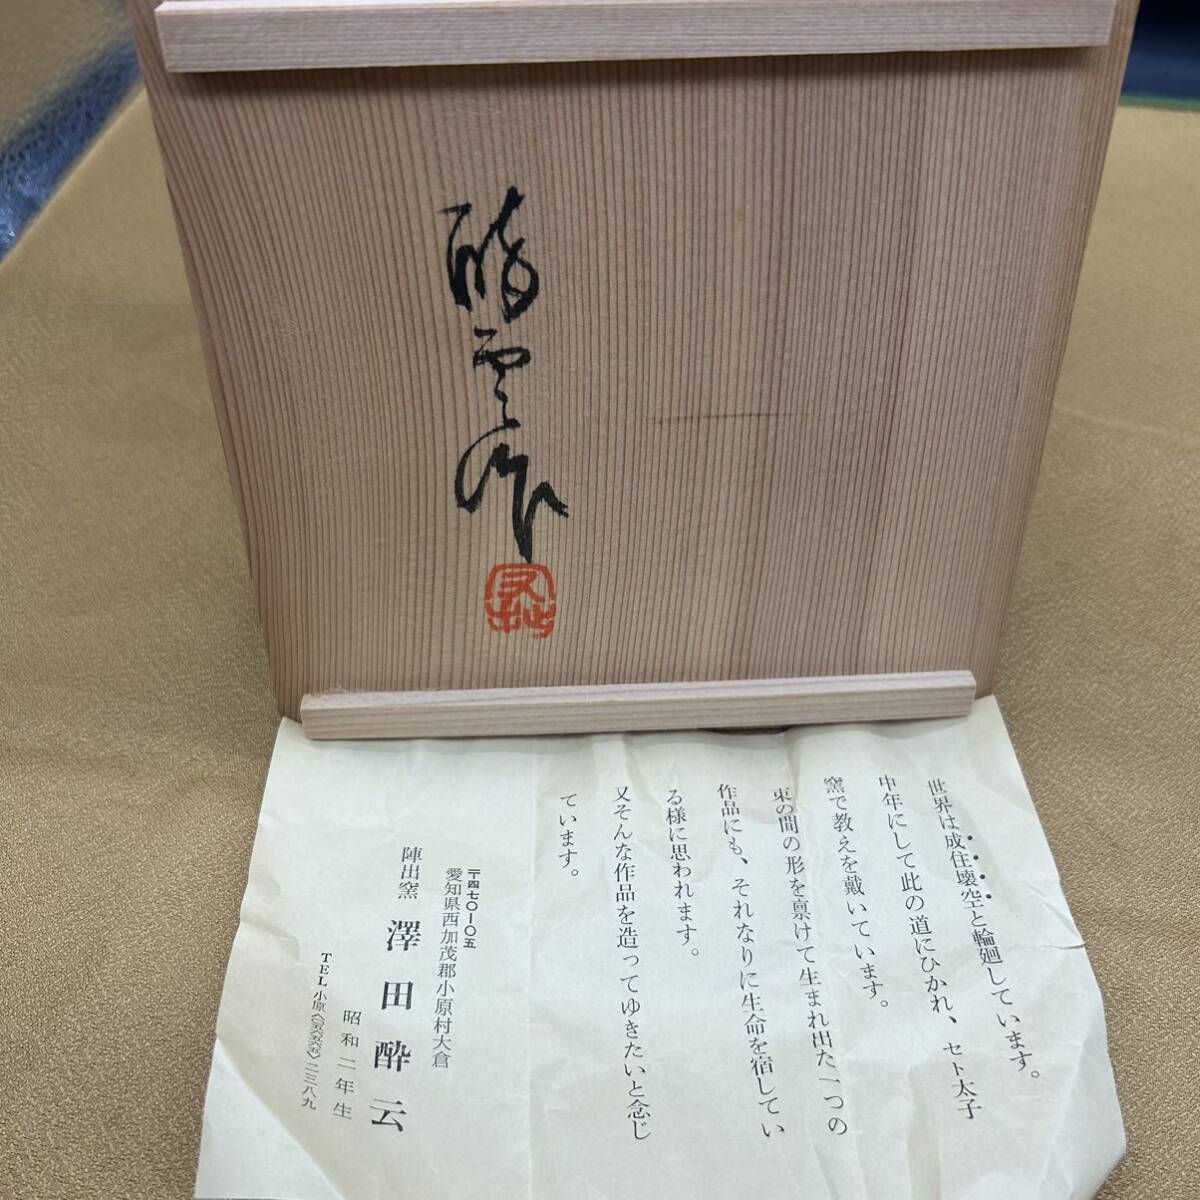 酔云作
世界は成住壊空と輪廻しています。
中年にして此の道にひかれ、セト太子
窯で教えを戴いています。
束の間の形を禀けて生まれ出た一つの
作品にも、それなりに生命を宿してい
る様に思われます。
又そんな作品を造ってゆきたいと念じ
ています。
〒四七〇ー〇五
愛知県西加茂郡小原村大倉
陣出窯 澤田酔云
昭和二年生
TEL小原〈〇五六五六五〉二三八九